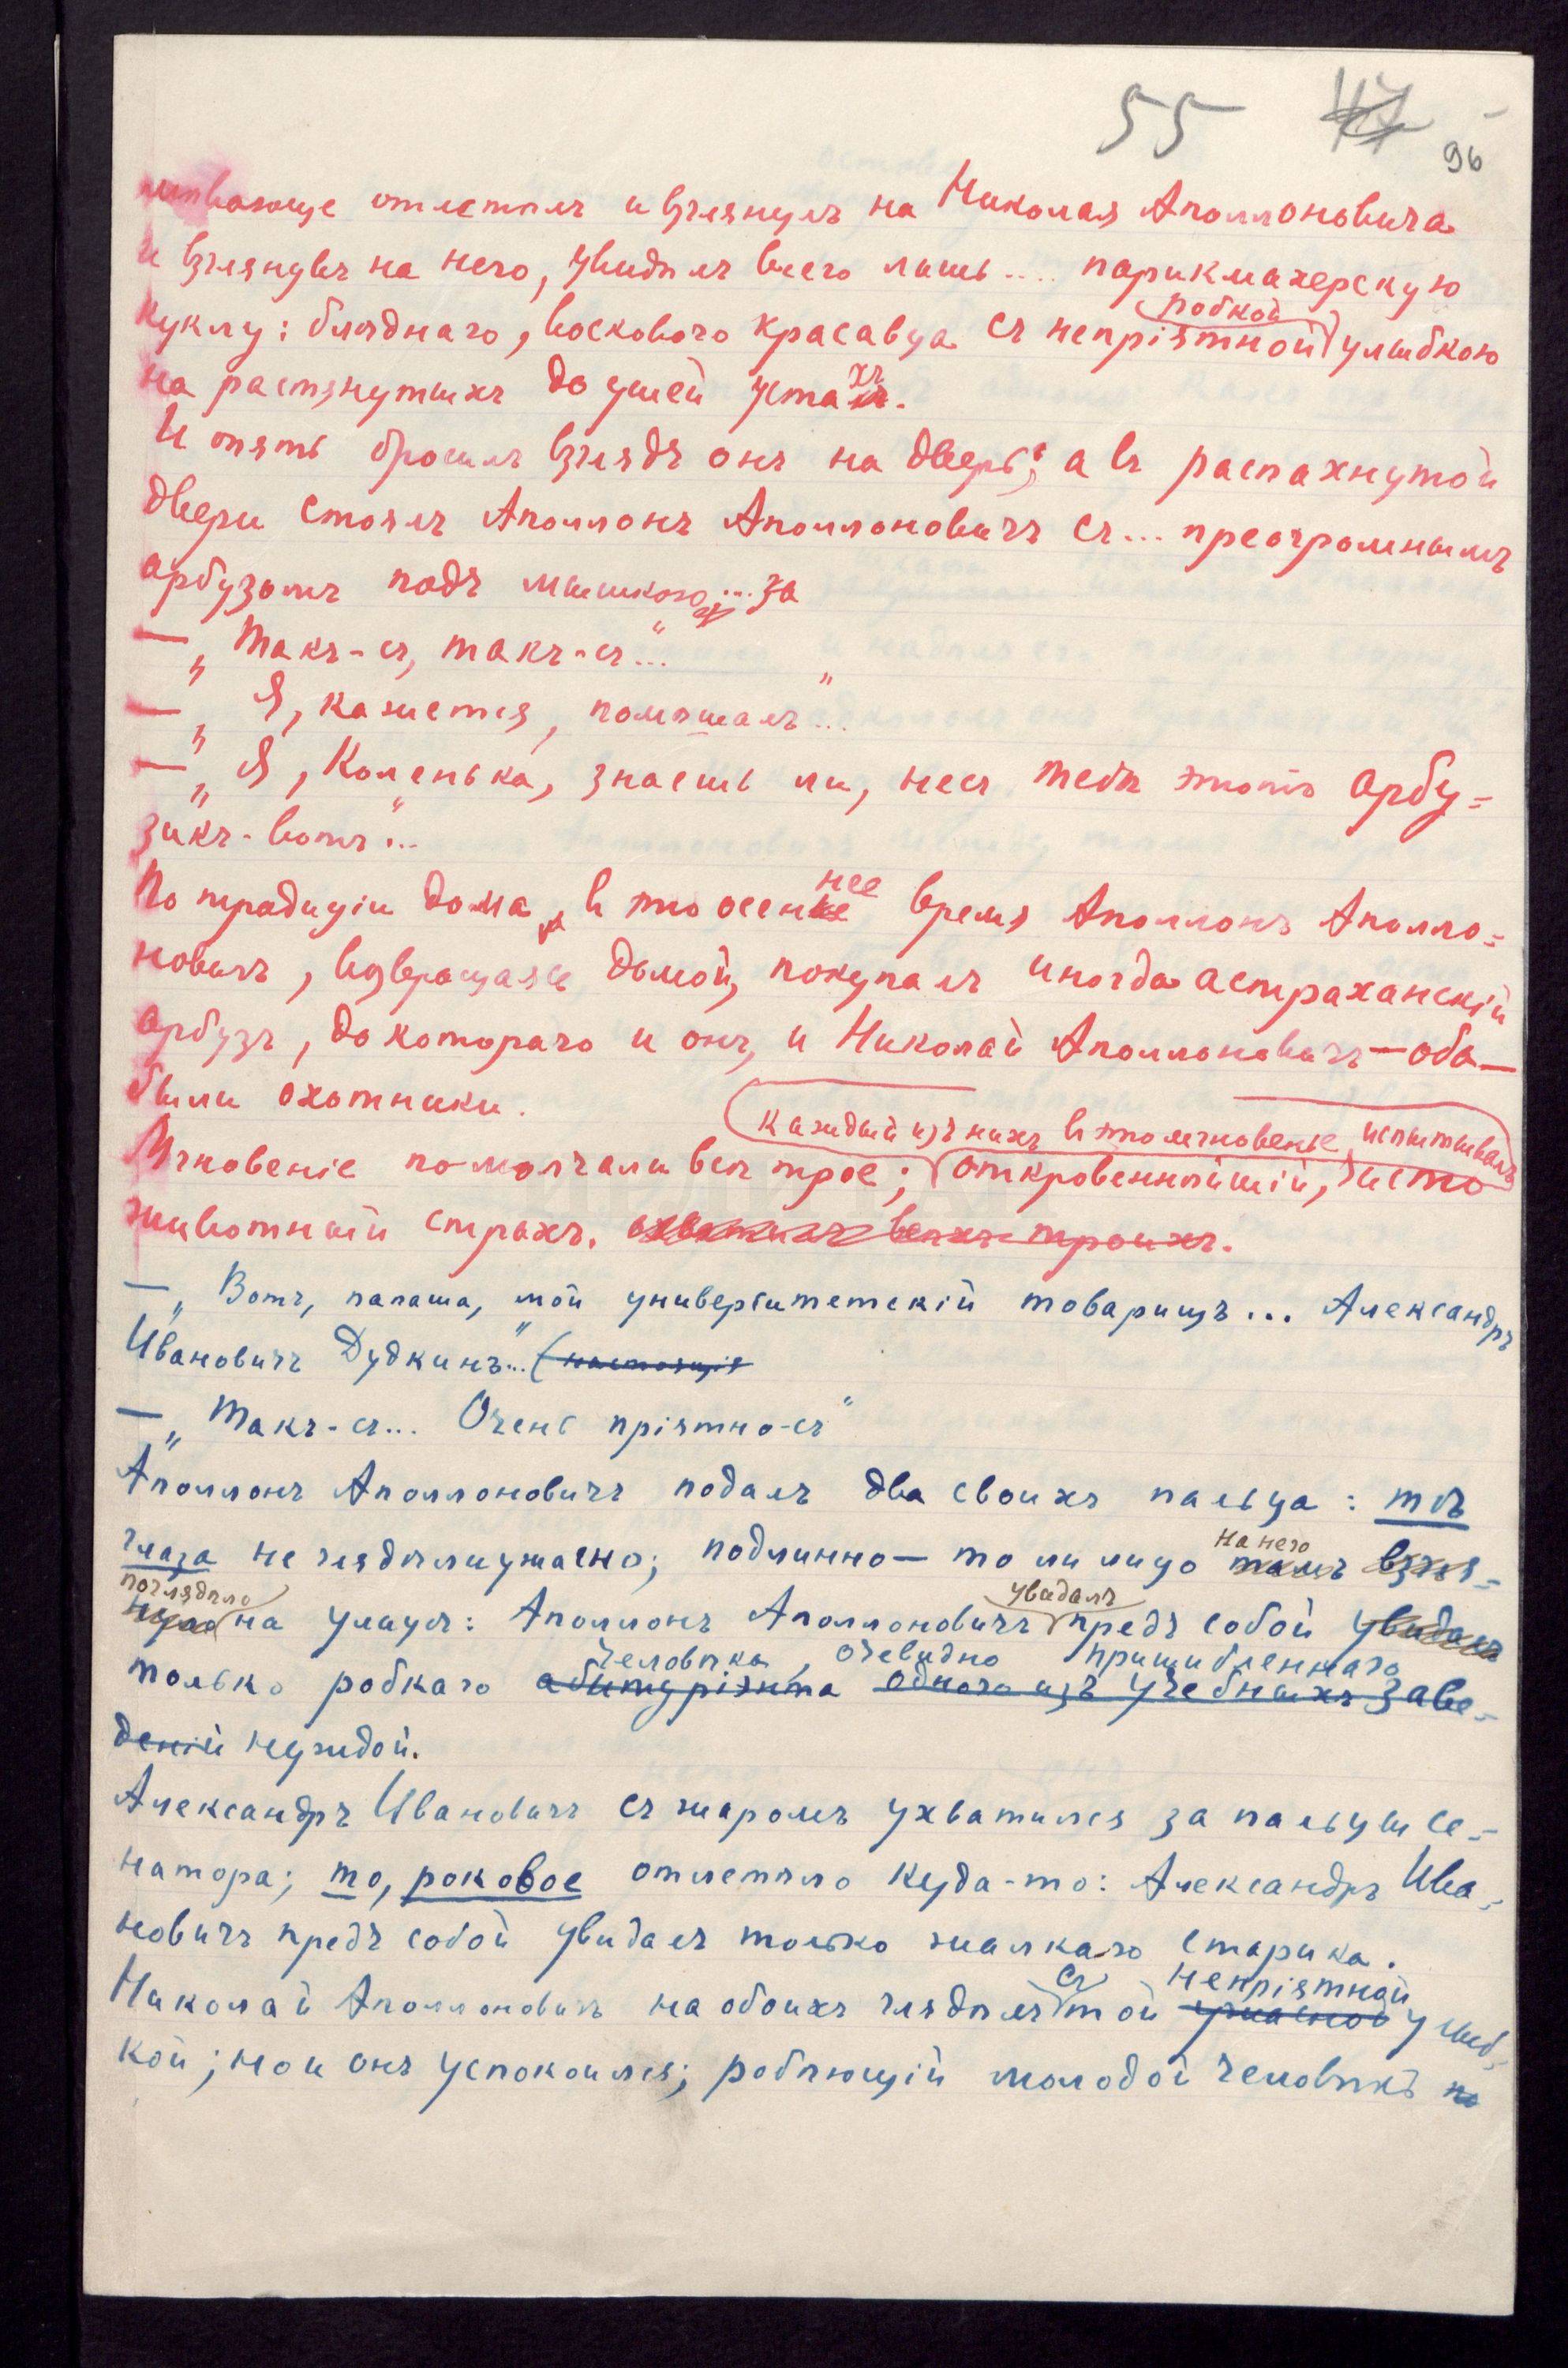 55 47 96
отлетѣлъ и взглянулъ на Николая Аполлоновича
и взглянувъ на него, увидѣлъ всего лишь.... парикмахерскую
робкой
куклу: блѣднаго, воскового красавца съ непріятной улыбкою
на растянутыхъ до ушей устахъ.
И опять бросилъ взглядъ онъ на дверь; а въ распахнутой
двери стоялъ Аполлонъ Аполлоновичъ съ... преогромнымъ
арбузомъ подъ мышкою...
— „Такъ-съ, такъ-съ..."
— „Я, кажется, помѣшалъ..."
— „Я, Коленька, знаешь ли, несъ тебѣ этотъ арбу=
зикъ-вотъ"...
нее
По традиціи дома, въ это осеннее время Аполлонъ Аполло=
новичъ, возвращаясь домой, покупалъ иногда астраханскій
арбузъ, до котораго и онъ, и Николай Аполлоновичъ — оба —
были охотники.
каждый изъ нихъ въ это мгновенье испытывалъ
Мгновеніе помолчали всѣ трое; откровеннѣйшій, чисто
животный страхъ. охватилъ всѣхъ троихъ.
— „Вотъ, папаша, мой университетскій товарищъ... Александръ
Ивановичъ Дудкинъ"...
— „Такъ-съ... Очень пріятно-съ"
Аполлонъ Аполлоновичъ подалъ два своихъ пальца: тѣ
на него
глаза не глядѣли ужасно; подлинно — то ли лицо тамъ взгля=
поглядѣло увидалъ
нуло на улицѣ: Аполлонъ Аполлоновичъ предъ собой увидалъ
человѣка, очевидно пришибленнаго
только робкаго абитуріэнта одного изъ учебныхъ заве=
деній нуждой.
Александръ Ивановичъ съ жаромъ ухватился за пальцы се=
натора; то, роковое отлетѣло куда-то: Александръ Ива=
новичъ предъ собой увидалъ только жалкаго старика.
съ непріятной
Николай Аполлоновичъ на обоихъ глядѣлъ той ужасной улыб=
кой; но и онъ успокоился; робѣющій молодой человѣкъ